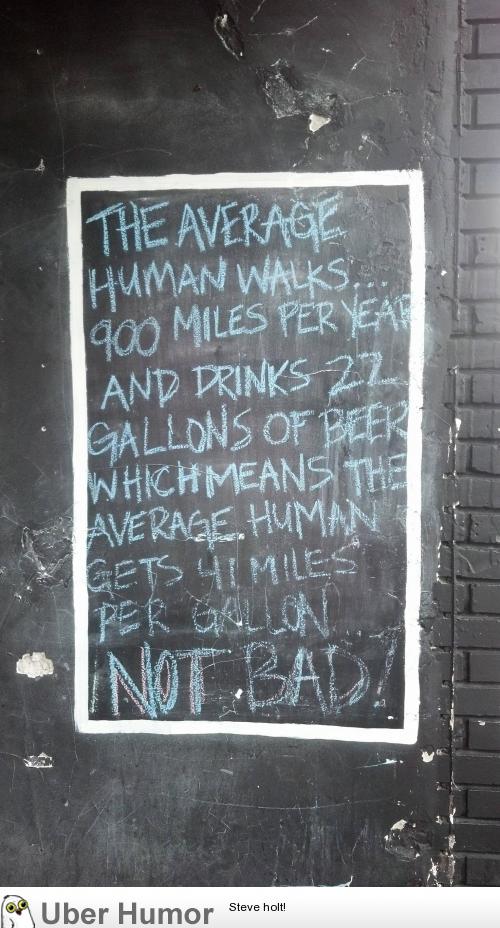 THE AVERAGE
HUMAN WALKS...
900 MILES PER YEAR
AND DRINKS 22
GALLONS OF BEER
WHICH MEANS THE
AVERAGE HUMAN
GETS 41 MILES
PER GALLON
NOT BAD!
Uber Humor
Steve holt!